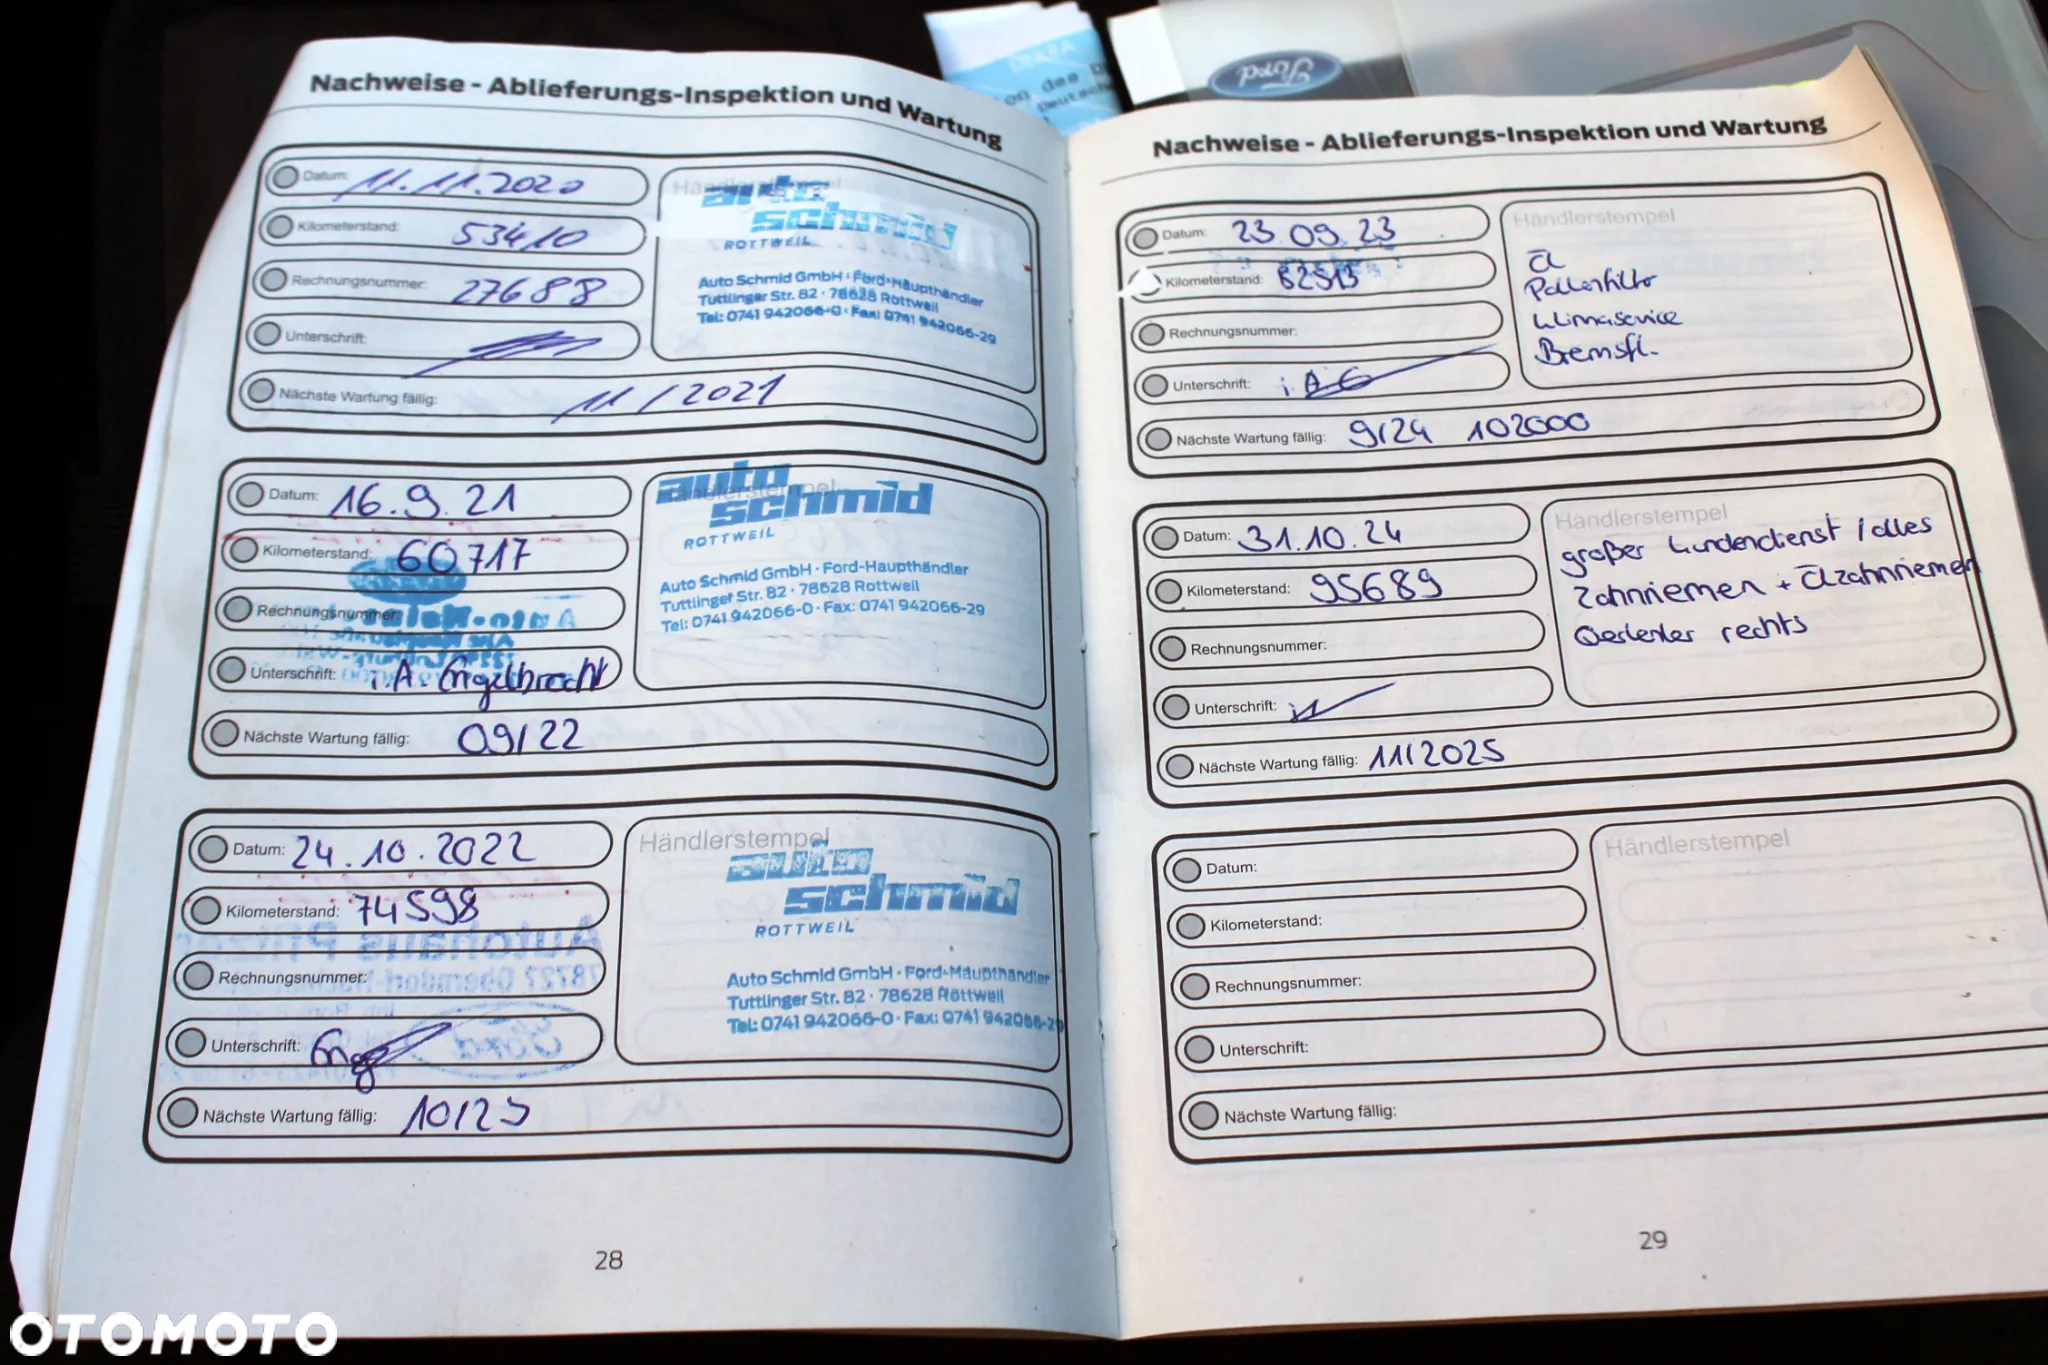 Nachweise - Ablieferungs-Inspektion und Wartung
Datum: 11.11.2020
Kilometerstand: 53410
Rechnungsnummer: 27688
Unterschrift:
Nächste Wartung fällig: 11/2021
auto
schmid
ROTTWEIL
Auto Schmid GmbH · Ford-Haupthändler
Tuttlinger Str. 82 · 78628 Rottweil
Tel: 0741 942066-0 · Fax: 0741 942066-29
Datum: 16.9.21
Kilometerstand: 60717
Rechnungsnummer:
Unterschrift: i.A. Engelbrecht
Nächste Wartung fällig: 09/22
Händlerstempel
auto
schmid
ROTTWEIL
Auto Schmid GmbH · Ford-Haupthändler
Tuttlinger Str. 82 · 78628 Rottweil
Tel: 0741 942066-0 · Fax: 0741 942066-29
Datum: 24.10.2022
Kilometerstand: 74598
Rechnungsnummer:
Unterschrift:
Nächste Wartung fällig: 10/23
Händlerstempel
auto
schmid
ROTTWEIL
Auto Schmid GmbH · Ford-Haupthändler
Tuttlinger Str. 82 · 78628 Rottweil
Tel: 0741 942066-0 · Fax: 0741 942066-29
28
DEKRA
Ford
Nachweise - Ablieferungs-Inspektion und Wartung
Datum: 23.09.23
Kilometerstand: 82513
Rechnungsnummer:
Unterschrift: i.A
Nächste Wartung fällig: 9/24 102000
Händlerstempel
Öl
Pollenfilter
Klimaservice
Bremsfl.
Datum: 31.10.24
Kilometerstand: 95689
Rechnungsnummer:
Unterschrift:
Nächste Wartung fällig: 11/2025
Händlerstempel
großer Kundendienst / alles
Zahnriemen + Ölzahnriemen
Querlenker rechts
Datum:
Kilometerstand:
Rechnungsnummer:
Unterschrift:
Nächste Wartung fällig:
Händlerstempel
29
OTOMOTO